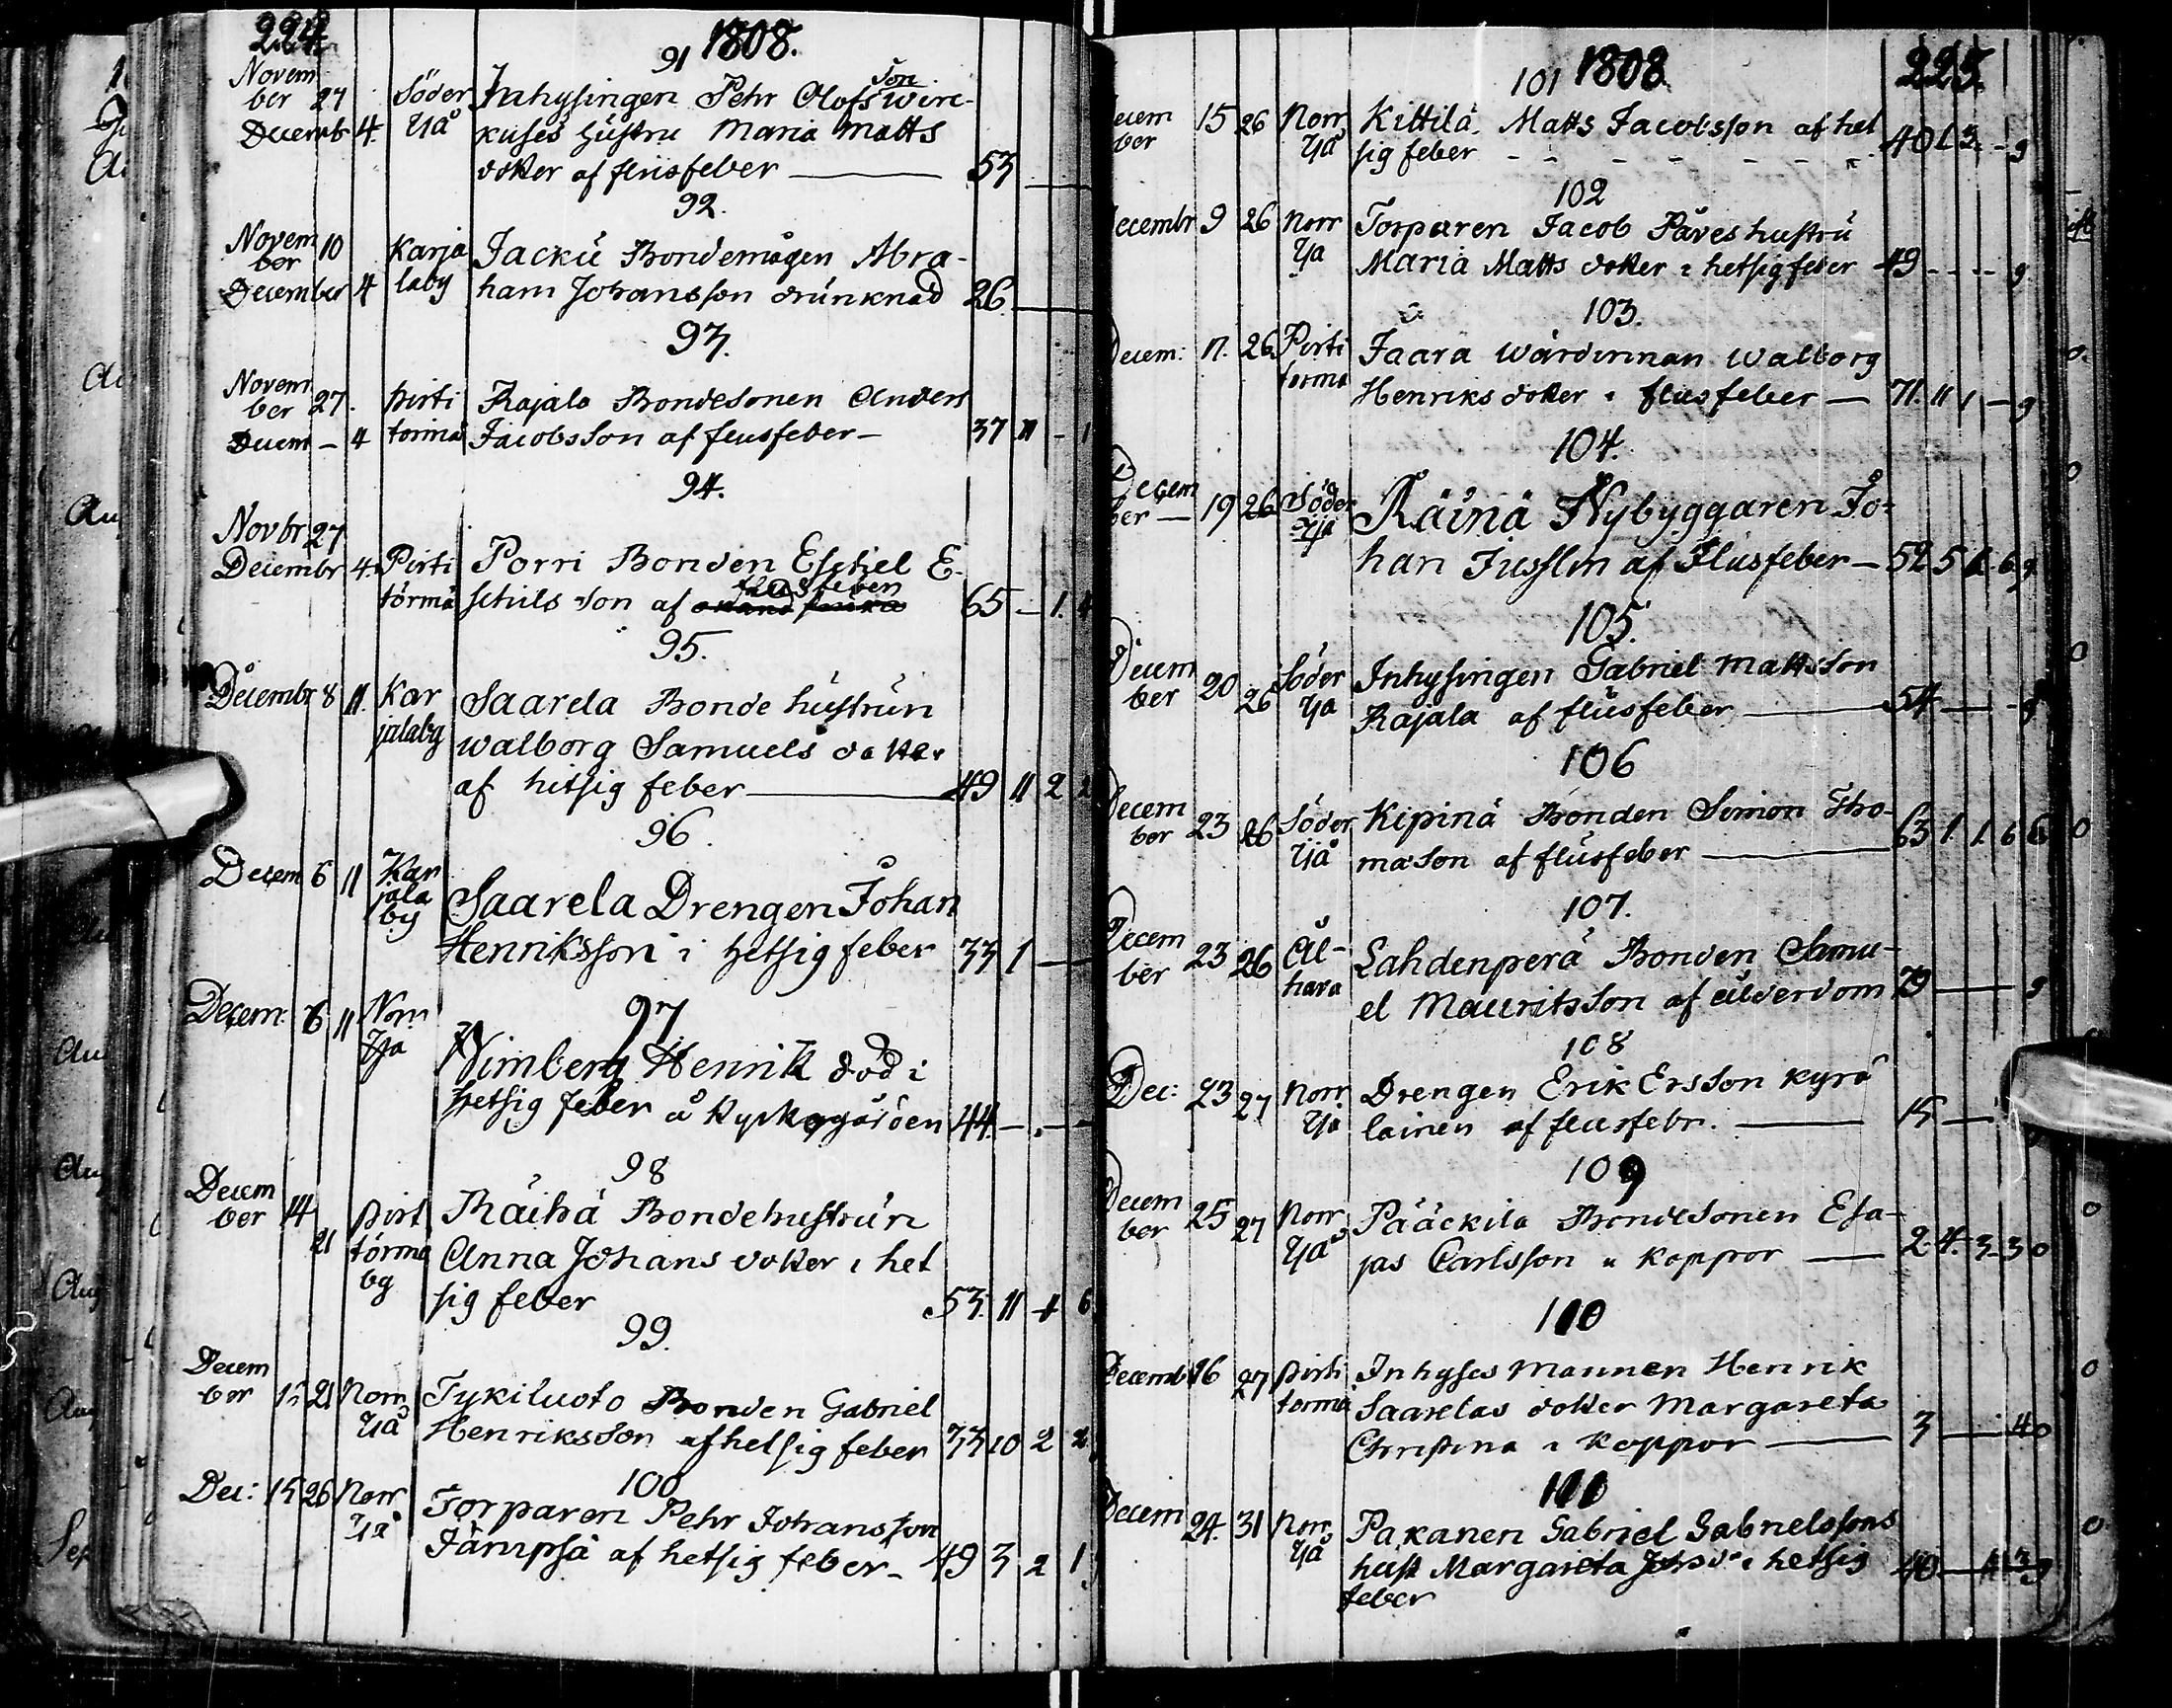 224
91 1808.
Novem
ber 27 Söder Inhysingen Pehr Olofs son Wirc-
Decemb 4. Yiå kuses hustru Maria Matts
dotter af flusfeber — 53
92.
Novem
ber 10 Karja Jacku Bondemågen Abra-
December 4 laby ham Johansson drunknad 26
93.
Novem
ber 27. Pirti Rajala Bondesonen Anders
Decem — 4 torma Jacobsson af flusfeber — 37 11 - 1
94.
Novbr 27
Decembr 4. Pirti Porri Bonden Eschel E-
törmä schils son af flusfeber 65 — 1. 4
95.
Decembr 8 11. Kar Saarela Bonde hustrun
jalaby Walborg Samuels dotter
af hitsig feber — 49 11 2 2
96.
Decem 6 11 Kar
jala
by Saarela Drengen Johan
Henriksson i hetsig feber 33 1 —
97
Decem: 8 11 Norr
Yja Nimberg Henrik död i
hetsig feber å Kyrkogården 44 — . —
98
Decem
ber 14 21 Pirt Räihä Bondehustrun
törma Anna Johans dotter i het
by sig feber 53. 11 4 6
99.
Decem
ber 15 21 Norr Tykiluoto Bonden Gabriel
Yiå Henriksson af helsig feber 73 10 2 2
100
Dec: 15 26 Norr Torparen Pehr Johansson
Yiå Jämpsä af hetsig feber — 49 3 2 1
101 1808 225
ecem 15 26 Norr Kittilä Matts Jacobsson af het
ber Yiå sig feber - - - - - - - 40 1 2 - 9
102
ecembr 9 26 Norr Torparen Jacob Påves hustru
Yja Maria Matts dotter i hetsig feber 49 - - - 9
103.
Decem: 17. 26 Pirti Jaara Wärdinnan Walborg
torma Henriks dotter i flusfeber — 71. 11 1 — 9
104.
Decem
ber — 19 26 Söder Räinä Nybyggaren Jo-
Yja han Jusslin af Flusfeber — 52 5 1 6 9
105.
Decem
ber 20 26 Söder Inhysingen Gabriel Mattsson
Yja Rajala af flusfeber — 54 — - 9
106
Decem
ber 23 26 Söder Kipinä Bonden Simon Tho-
Yiå mason af flusfeber — 63 1. 1. 6 6
107.
Decem
ber 23 26 Al- Lahdenperä Bonden Samu-
hava el Mauritsson af ålderdom 79 — 9
108
Dec: 23 27 Norr Drengen Erik Ersson Kyrö
Yjå lainen af flusfebr. — 15 —
109
Decem
ber 25 27 Norr Pääckila Bondesonen Esa-
Yiå jas Carlsson i koppor — 2. 4. 3 30
110
Decembr 16 27 Pirti Inhyses Mannen Henrik
torma Saarelas dotter Margareta
Christina i koppor — 3 — 40
111
Decem 24. 31 Norr Pakanen Gabriel Gabrielssons
Yiå hust Margareta Johsdr i hetsig
feber 40